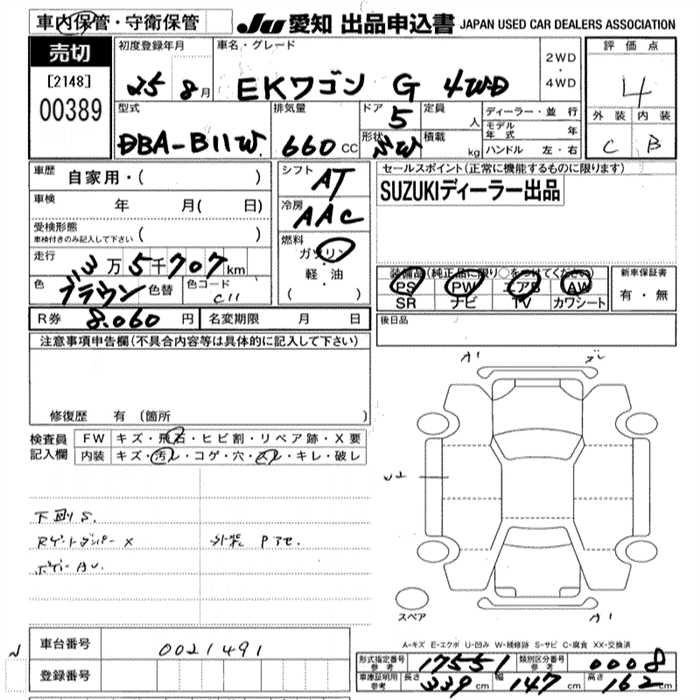 車内保管・守衛保管 JU 愛知 出品申込書 JAPAN USED CAR DEALERS ASSOCIATION
売切 [2148] 00389
初度登録年月 25 8月
車名・グレード EKワゴン G 4WD
2WD・4WD
評価点 4
外装 C 内装 B
型式 DBA-B11W
排気量 660 CC
ドア 5 形状 SW
定員 人
積載 kg
ディーラー・並行
モデル年式 年
ハンドル 左・右
車歴 自家用・( )
車検 年 月( 日)
受検形態 車検付きのみ記入して下さい ( )
走行 13万5千707km
色 ブラウン 色替 色コード C11
シフト AT
冷房 AAC
燃料 ガソリン・軽・油・( )
セールスポイント(正常に機能するものに限ります)
SUZUKIディーラー出品
装備品(純正品に限り○をつけてください)
PS PW エアB AW
SR ナビ TV カワシート
新車保証書 有・無
R券 8.060 円 名変期限 月 日
後日品
注意事項申告欄(不具合内容等は具体的に記入して下さい)
修復歴 有 (箇所
検査員記入欄
FW キズ・飛石・ヒビ割・リペア跡・X要
内装 キズ・汚レ・コゲ・穴・スレ・キレ・破レ
A1
A1
スペア
下廻りS.
車台番号 0021491
登録番号
A-キズ E-エクボ U-凹み W-補修跡 S-サビ C-腐食 XX-交換済
形式指定番号 参考 17551 類別区分番号 参考 0008
車庫証明用 参考 長さ 339cm 幅 147cm 高さ 162cm